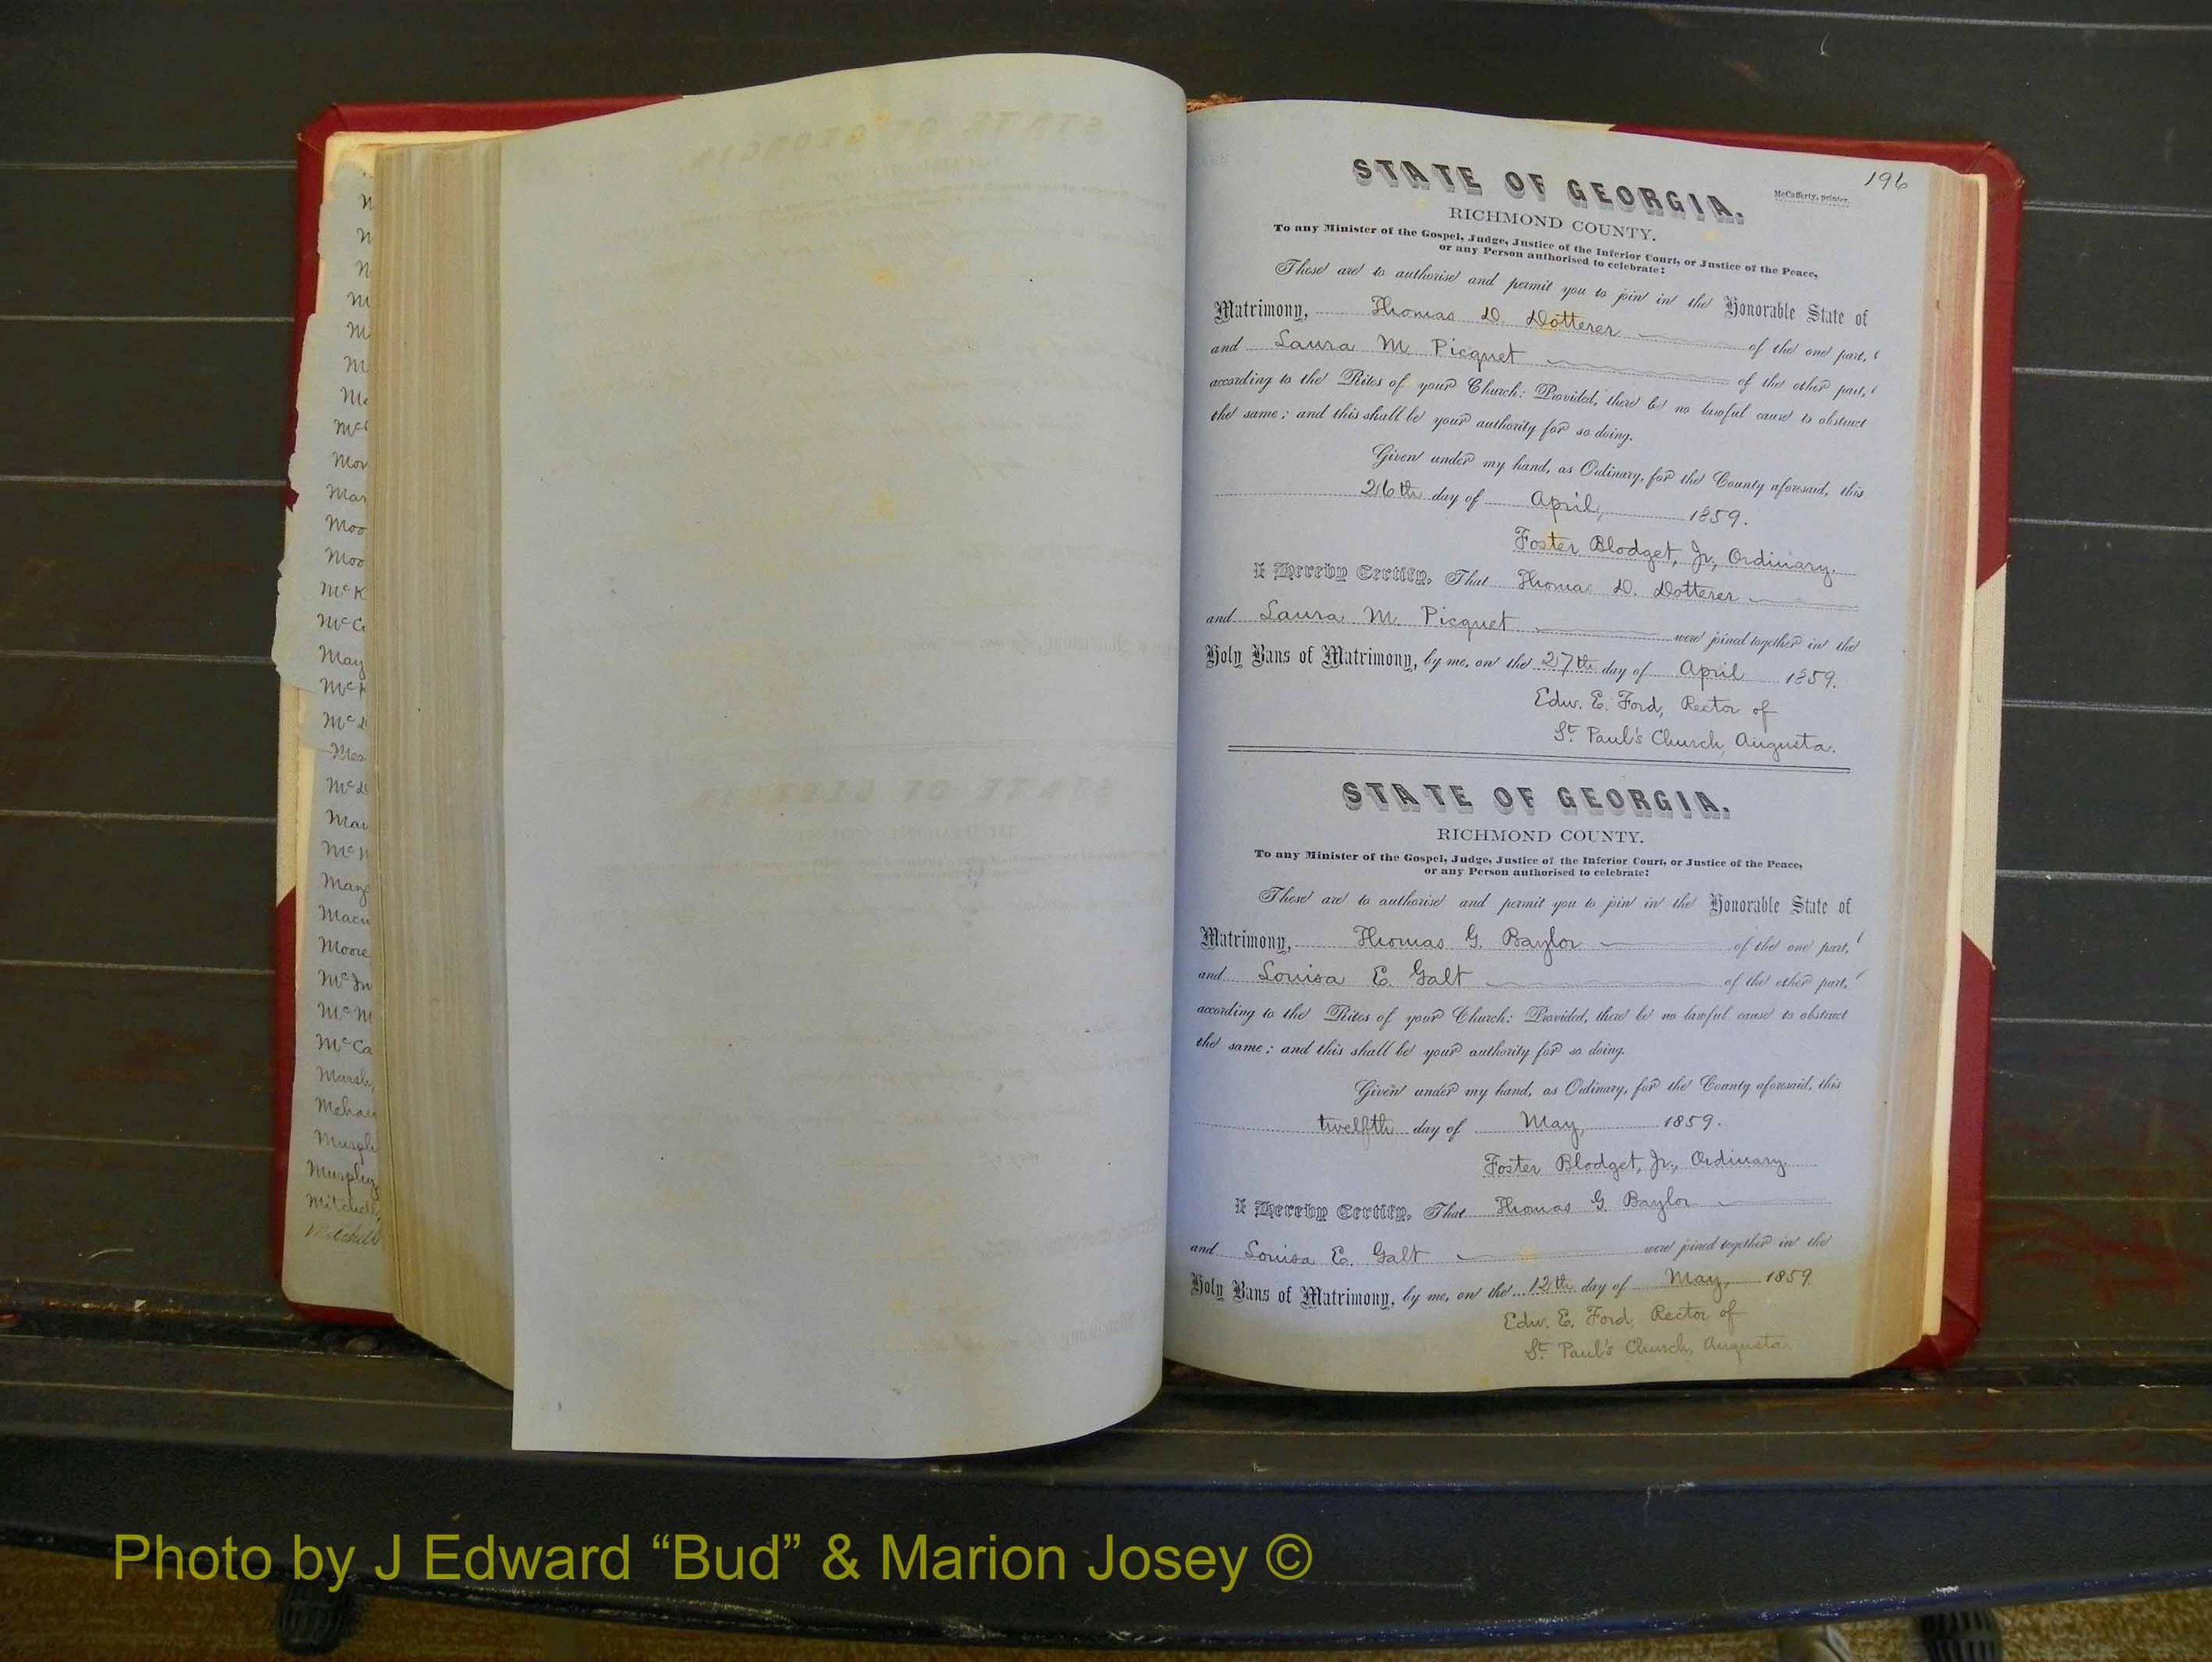 196
STATE OF GEORGIA.
McCafferty, printer.
RICHMOND COUNTY.
To any Minister of the Gospel, Judge, Justice of the Inferior Court, or Justice of the Peace,
or any Person authorised to celebrate:
These are to authorise and permit you to join in the Honorable State of
Matrimony, Thomas D. Dotterer of the one part,
and Laura M Picquet of the other part,
according to the Rites of your Church: Provided, there be no lawful cause to obstruct
the same; and this shall be your authority for so doing.
Given under my hand, as Ordinary, for the County aforesaid, this
26th day of April, 1859.
Foster Blodget, Jr, Ordinary.
I Hereby Certify, That Thomas D. Dotterer
and Laura M. Picquet were joined together in the
Holy Bans of Matrimony, by me, on the 27th day of April 1859.
Edw. E. Ford, Rector of
St. Paul's Church, Augusta.
STATE OF GEORGIA.
RICHMOND COUNTY.
To any Minister of the Gospel, Judge, Justice of the Inferior Court, or Justice of the Peace,
or any Person authorised to celebrate:
These are to authorise and permit you to join in the Honorable State of
Matrimony, Thomas G. Baylor of the one part,
and Louisa E. Galt of the other part,
according to the Rites of your Church: Provided, there be no lawful cause to obstruct
the same; and this shall be your authority for so doing.
Given under my hand, as Ordinary, for the County aforesaid, this
twelfth day of May, 1859.
Foster Blodget, Jr., Ordinary.
I Hereby Certify, That Thomas G. Baylor
and Louisa E. Galt were joined together in the
Holy Bans of Matrimony, by me, on the 12th day of May, 1859.
Edw. E. Ford, Rector of
St. Paul's Church, Augusta.
Mor
Mar
Moo
Moo
McK
May
Moore
McCa
Marsh,
Murphy
Mitchell,
Mitchell
Photo by J Edward “Bud” & Marion Josey ©